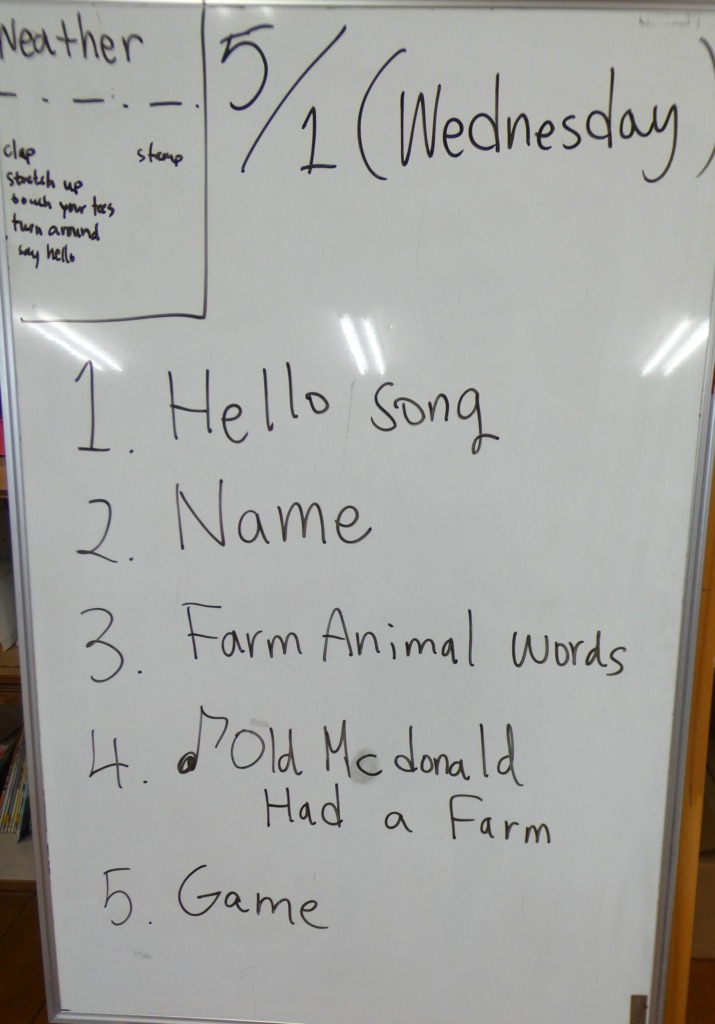 Weather
clap stomp
stretch up
touch your toes
turn around
say hello
5/1 (Wednesday)
1. Hello song
2. Name
3. Farm Animal words
4. ♪ Old Mcdonald
Had a Farm
5. Game